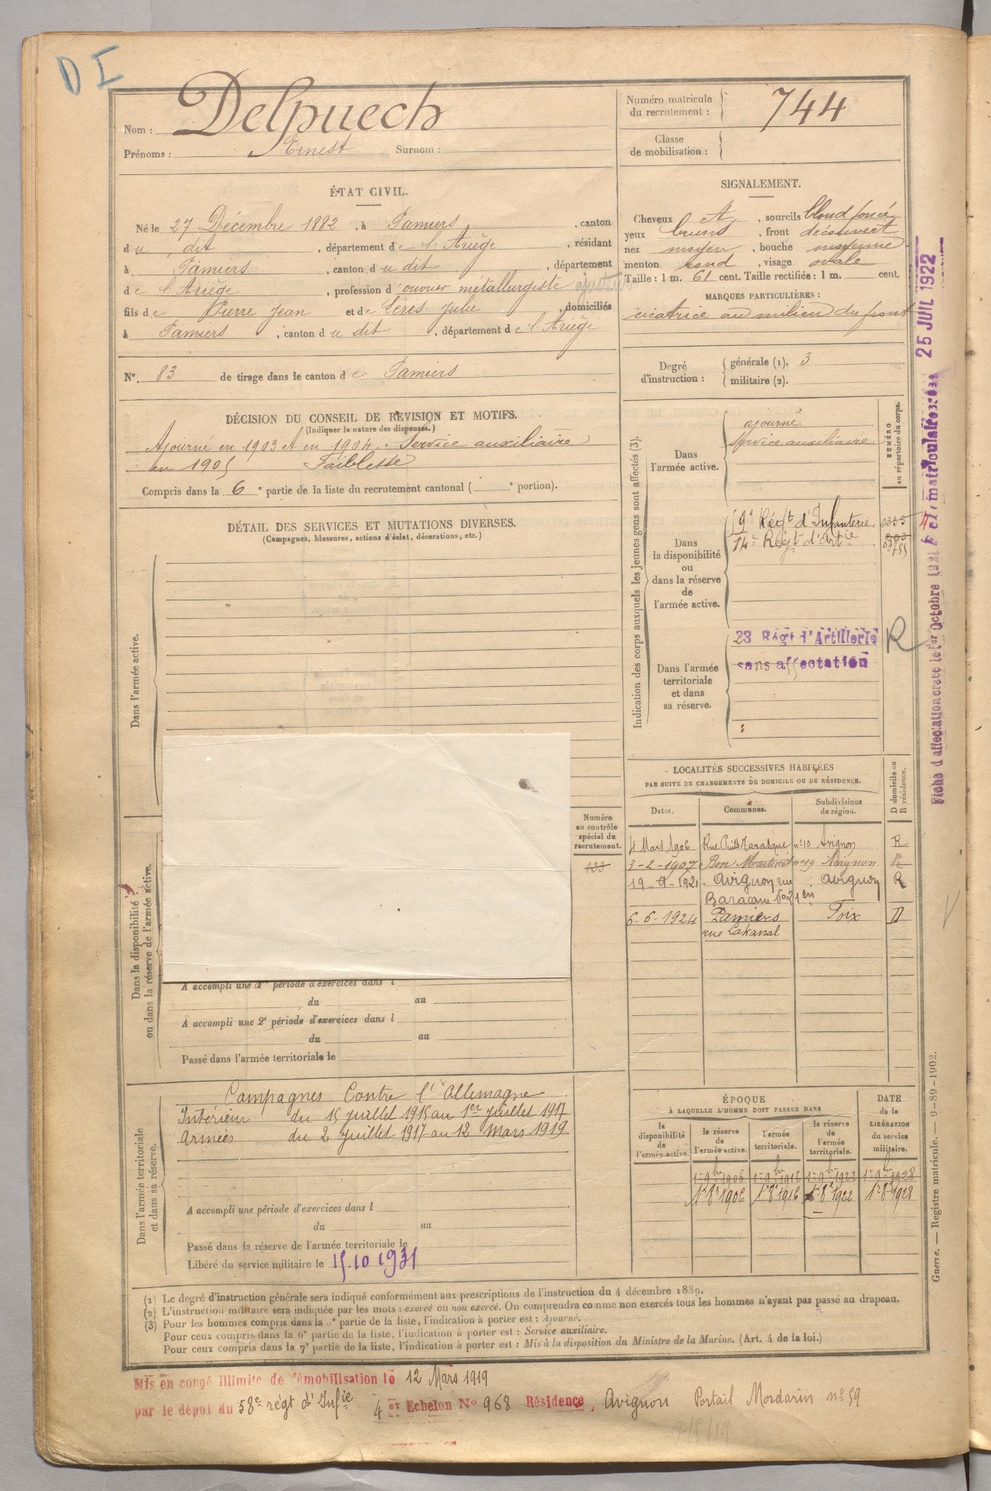 D I
Nom : Delpuech
Prénoms : Ernest Surnom :
Numéro matricule du recrutement : 744
Classe de mobilisation :
ÉTAT CIVIL.
Né le 27 Décembre 1882, à Pamiers, canton
du dit, département de l'Ariège, résidant
à Pamiers, canton du dit, département
de l'Ariège, profession d'ouvrier métallurgiste
fils de Pierre Jean et de Julie, domiciliés
à Pamiers, canton du dit, département de l'Ariège
N° 83 de tirage dans le canton de Pamiers
SIGNALEMENT.
Cheveux et, sourcils blond foncé
yeux bruns, front découvert
nez moyen, bouche moyenne
menton rond, visage ovale
Taille : 1 m. 61 cent. Taille rectifiée : 1 m. cent.
MARQUES PARTICULIÈRES :
cicatrice au milieu du front
Degré d'instruction : générale (1). 3
militaire (2).
DÉCISION DU CONSEIL DE REVISION ET MOTIFS.
(Indiquer la nature des dispenses.)
Ajourné en 1903 et en 1904. Service auxiliaire
en 1905 Faiblesse
Compris dans la 6e partie de la liste du recrutement cantonal ( e portion).
DÉTAIL DES SERVICES ET MUTATIONS DIVERSES.
(Campagnes, blessures, actions d'éclat, décorations, etc.)
Dans l'armée active.
Dans la disponibilité ou dans la réserve de l'armée active.
Numéro au contrôle spécial du recrutement.
A accompli une 1e période d'exercices dans l
du au
A accompli une 2e période d'exercices dans l
du au
Passé dans l'armée territoriale le
Dans l'armée territoriale et dans sa réserve.
Campagnes Contre l'Allemagne
Intérieur du 15 juillet 1915 au 1er juillet 1917
Armées du 2 juillet 1917 au 12 Mars 1919
A accompli une période d'exercices dans l
du au
Passé dans la réserve de l'armée territoriale le
Libéré du service militaire le 15.10 1931
Indication des corps auxquels les jeunes gens sont affectés (3).
NUMÉRO au répertoire du corps.
Dans l'armée active.
ajourné
Service auxiliaire
Dans la disponibilité ou dans la réserve de l'armée active.
9e Régt d'Infanterie.
14e Régt d'Artie
Dans l'armée territoriale et dans sa réserve.
23 Régt d'Artillerie
sans affectation
R
LOCALITÉS SUCCESSIVES HABITÉES
PAR SUITE DE CHANGEMENTS DE DOMICILE OU DE RÉSIDENCE.
Dates. Communes. Subdivisions de région. D domicile ou R résidence.
4 Mars 1906 n° 10 Avignon R
3-2-1907 n° 19 Avignon R
19-9-1921 Avignon rue Avignon R
6-6-1924 Pamiers Foix D
rue Lakanal
ÉPOQUE
À LAQUELLE L'HOMME DOIT PASSER DANS
la disponibilité de l'armée active. la réserve de l'armée active. l'armée territoriale. la réserve de l'armée territoriale. DATE de la LIBÉRATION du service militaire.
1er 9bre 1906 1er 9bre 1916 1er 9bre 1922 1er 9bre 1928
1er 8bre 1906 1er 8bre 1916 1er 8bre 1922 1er 8bre 1928
Fiche d'affectation créée le 1er Octobre 1921 25 JUIL 1922
Guerre. — Registre matricule. — 9-89-1902.
(1) Le degré d'instruction générale sera indiqué conformément aux prescriptions de l'instruction du 4 décembre 1889.
(2) L'instruction militaire sera indiquée par les mots : exercé ou non exercé. On comprendra comme non exercés tous les hommes n'ayant pas passé au drapeau.
(3) Pour les hommes compris dans la 5e partie de la liste, l'indication à porter est : Ajourné.
Pour ceux compris dans la 6e partie de la liste, l'indication à porter est : Service auxiliaire.
Pour ceux compris dans la 7e partie de la liste, l'indication à porter est : Mis à la disposition du Ministre de la Marine. (Art. 4 de la loi.)
Mis en congé illimité de démobilisation le 12 Mars 1919
par le dépôt du 58e régt d'Infie 4 et Echelon N° 968 Résidence, Avignon Portail Mordarin n° 59